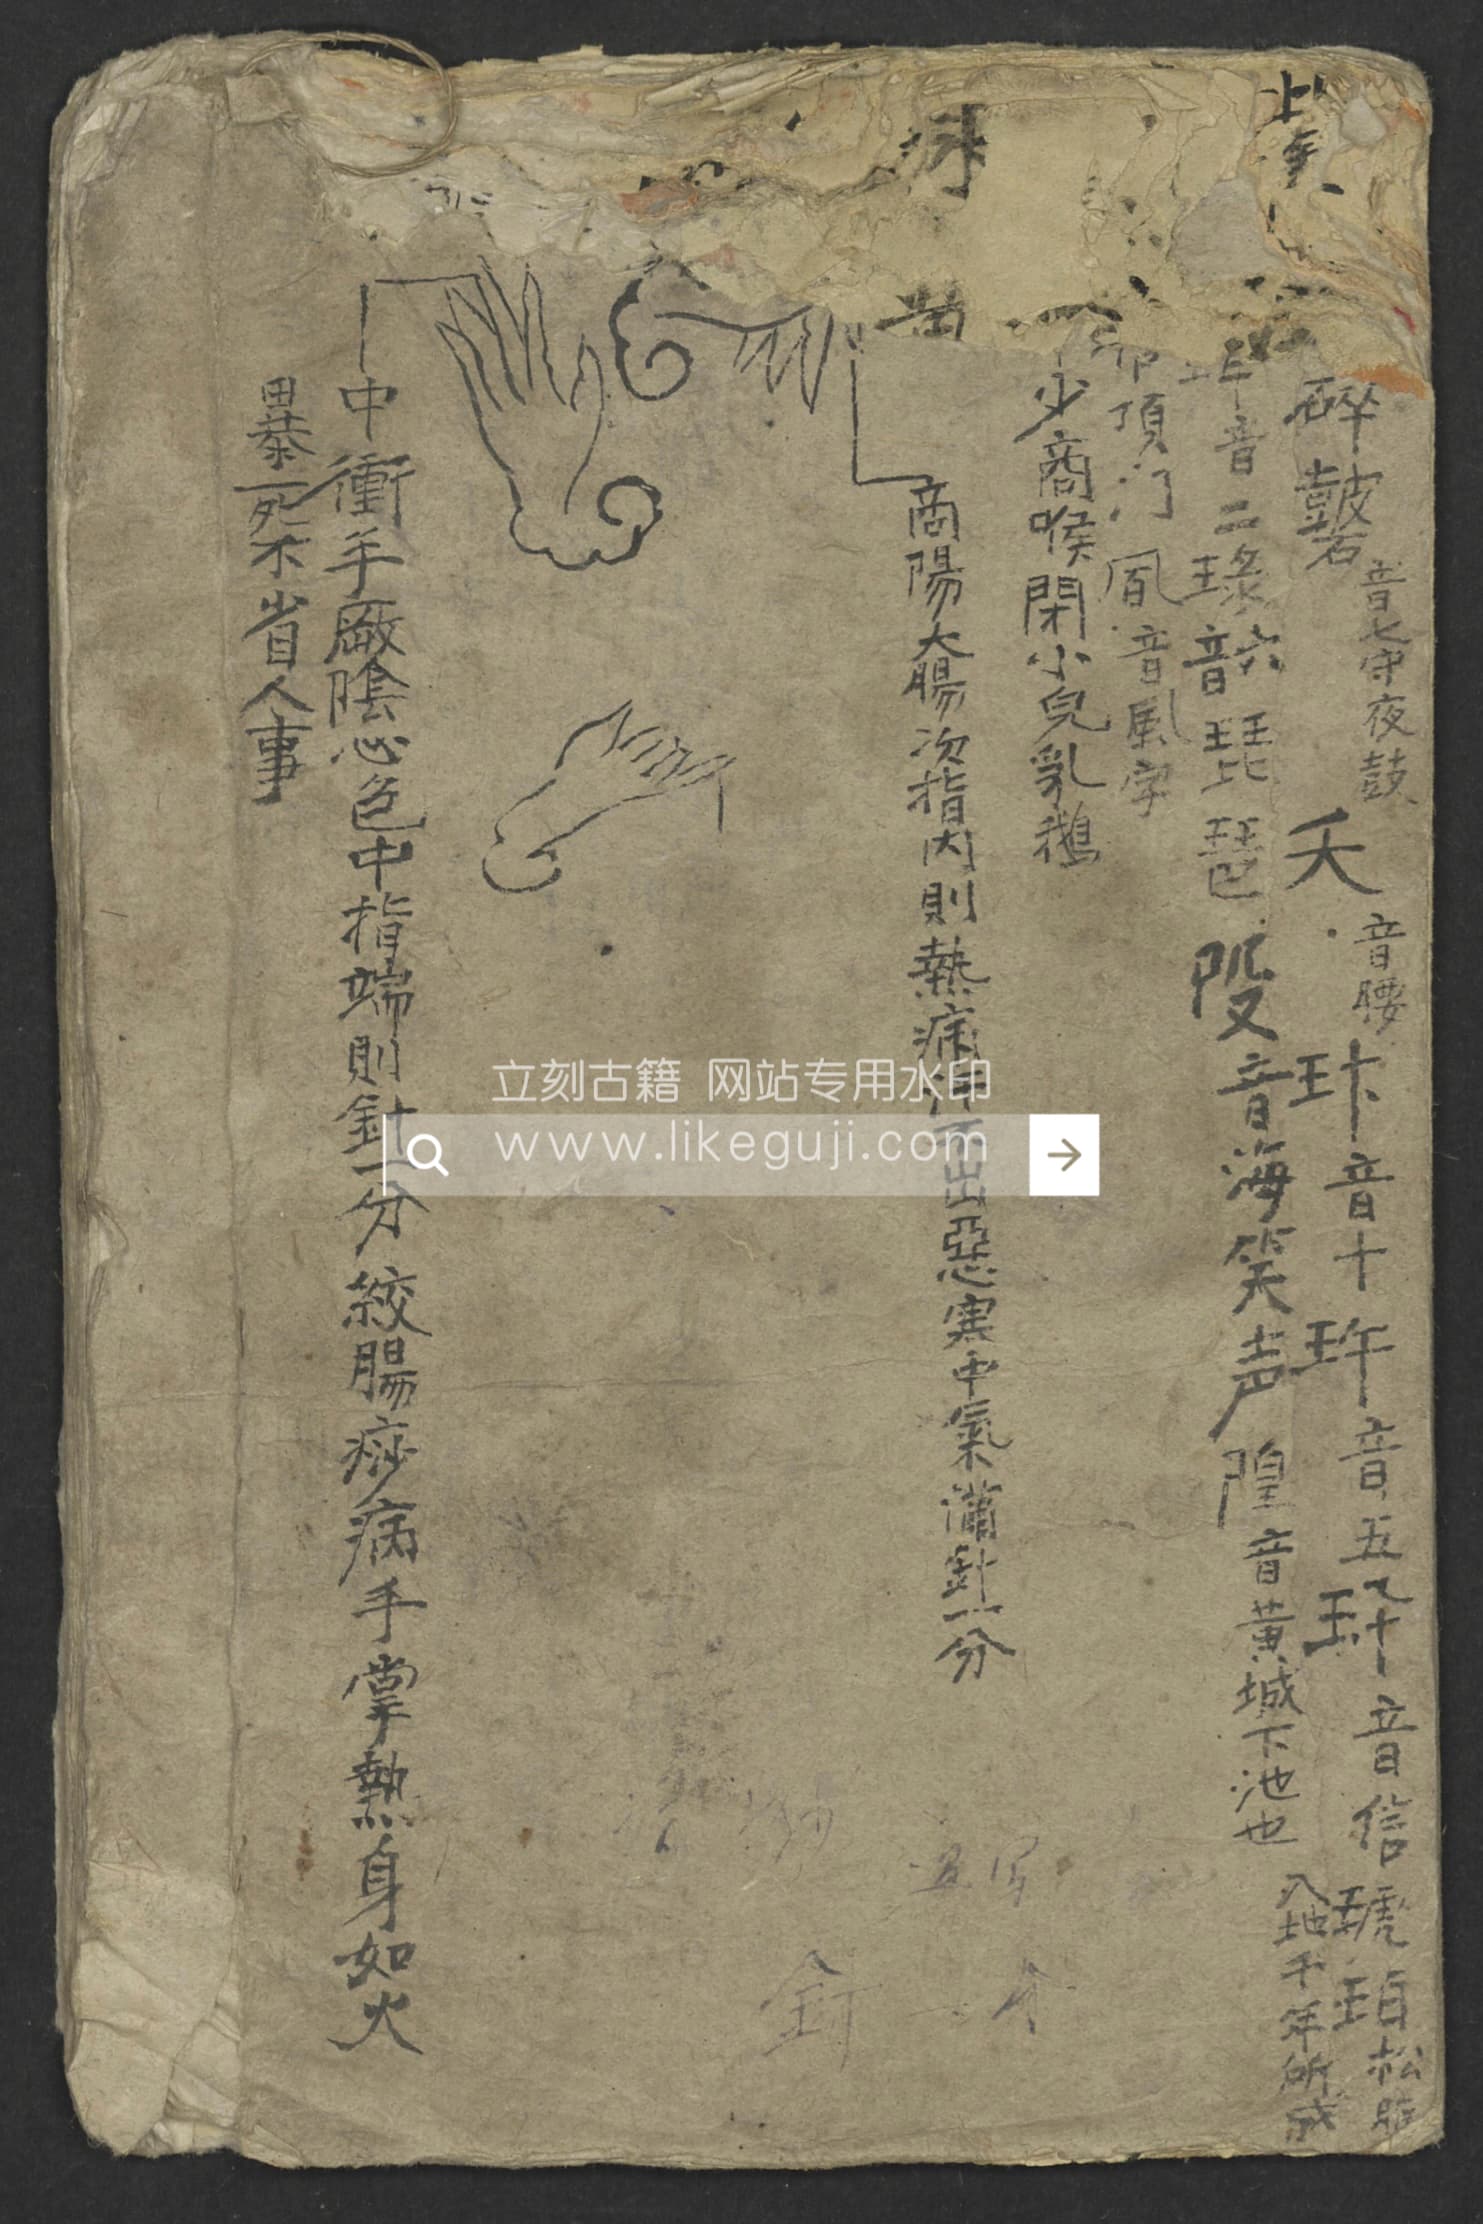 碎鼕
音七守夜鼓
夭
音腰
玣音十玝音五
音信琥珀松
八地千年所成
音二琭音六琵琶
音海笑声隍音黄城下池也
頂门凬音風字
少商喉閉小兒乳鵝
商陽大腸次指内則熱病汗不出惡寒中氣满針一分
中衝手厥陰心包中指端則針一分絞腸痧病手掌熱身如火
暴死不省人事
立刻古籍 网站专用水印
www.likeguji.com